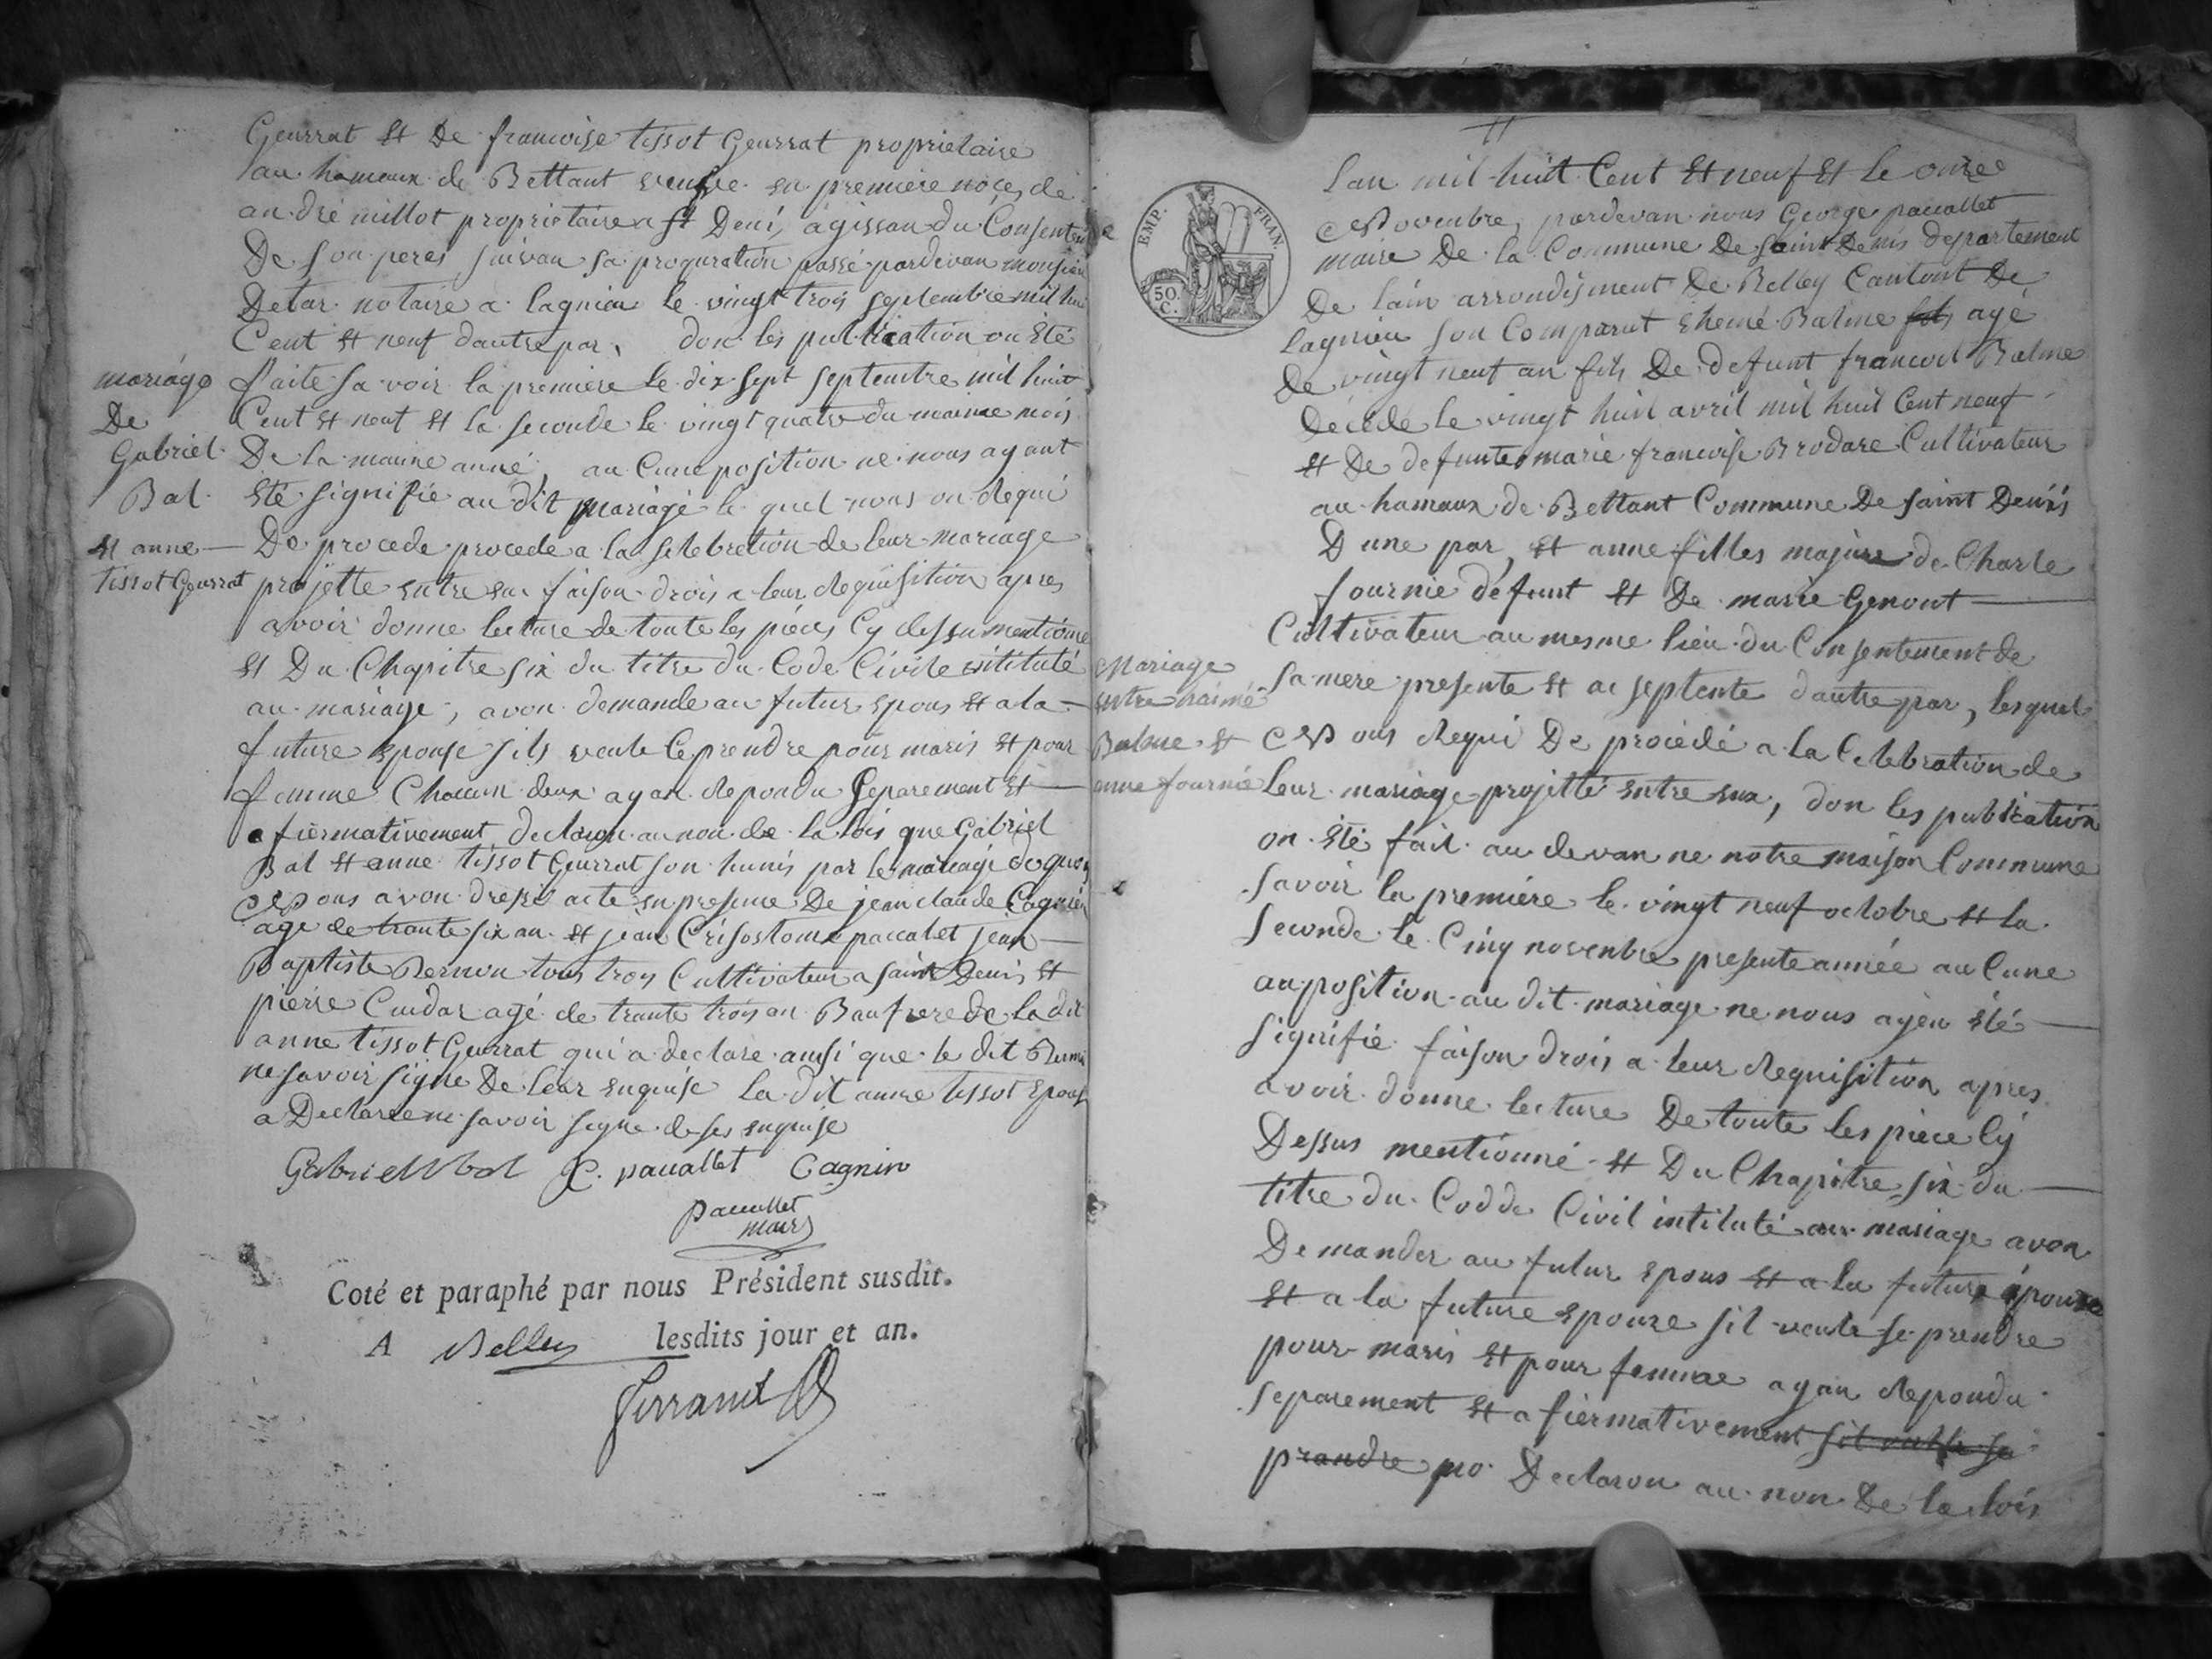 Geurrat et De francoise tissot Geurrat proprietaire
au hameaux de Bettant veufve en premiere noces de
andré millot proprietaire a st Deni, agissan du Consentem
De son peres suivan sa proquration passé pardevan monsieu
Detar notaire a lagnieu le vingt trois septembre mil hui
Cent et neuf dautre par, don les publication on été
faite sa voir la premiere le dix sept septembre mil huit
Cent et neuf et la seconde le vingt quatre du maime mois
De la maime anné, au Cune position ne nous ayant
été signifié au dit mariage le quel nous on Requi
De procede procede a la selebretion de leur mariage
projette entre eux faison drois a leur Requisition apres
avoir donne lecture de toute les piéces Cy dessu mentione
et Du Chapitre six du titre du Code Civile intitulé
au mariage, avon demande au futur epous et a la
future eponse sils veule Ce prendre pour maris et pour
femme Chacun deux ayan Repondu separement et
afiermativement declaron au non de la lois que Gabriel
Bal et anne tissot Geurrat son hunis par le mariage de quoy
Nous avon dressé acte en presence De jean claude Cagnin
age de trante six an et jean Crisostome paccalet jean
Baptiste Bernou tous trois Cultivateur a saint Denis et
pierre Cuidar agé de trante trois an Baufrere de la dit
anne tissot Geurrat qui a declare ainsi que le dit Bernou
ne savoir signe De leur enquise la dit anne tissot Epouse
a Declaree ne savoir signe de ses enquise
Gabriel bal C. pacallet Cagnin
Pacallet
maire
Coté et paraphé par nous Président susdit.
A Belley lesdits jour et an.
Ferrand
mariage
De
Gabriel
Bal
et anne
tissot Geurrat
11
EMP. FRAN.
50.
C.
Lan mil huit Cent et neuf et le onze
Novenbre, pardevan nous George pacallet
maire De la Commune De saint Denis departement
De lain arrondisment De Belley Cantont De
Lagnieu son Comparut ehemé Balme fils agé
De vingt neuf an fils De defunt francoit Balme
Décédé le vingt huit avril mil huit Cent neuf
et De defunte marie francoise Brodare Cultivateur
au hameaux de Bettant Commune De saint Denis
D une par, et anne filles majure de Charle
fournie défunt et De marie Genout
Cultivateur au mesme lieu du Consentement de
sa mere presente et ac septente dautre par, lesquel
Nous Requi De procédé a la Celebration de
leur mariage projetté entre eux, don les publication
on été fait au devan ne notre maison Commune
savoir la premiére le vingt neuf octobre et la
seconde le Cinq novenbre presente année au Cune
auposition au dit mariage ne nous ayen été
signifie faison drois a leur Requisition apres
avoir donne lecture De toute les piece Cy
Dessus mentionné et Du Chapitre six du
titre du Codde Civil intitulé au mariage avon
Demander au futur epous et a la future épouse
et a la future epouze sil veule se prendre
pour maris et pour femme ayan Repondu
separement et afiermativement sil veule se
prandre po Declaron au non De la lois
Mariage
entre haimé
Balme et
anne fournié